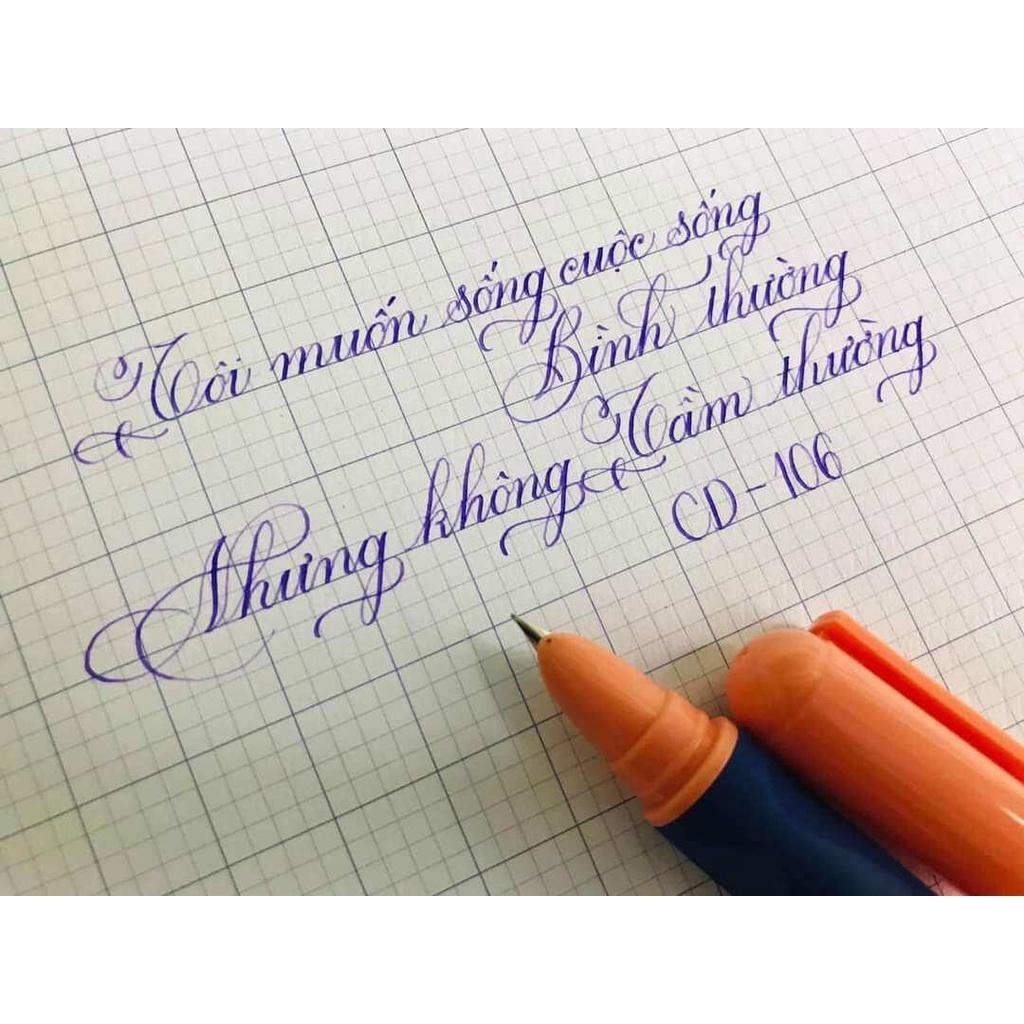 Tôi muốn sống cuộc sống
Bình thường
Nhưng không Tầm thường
CD-106